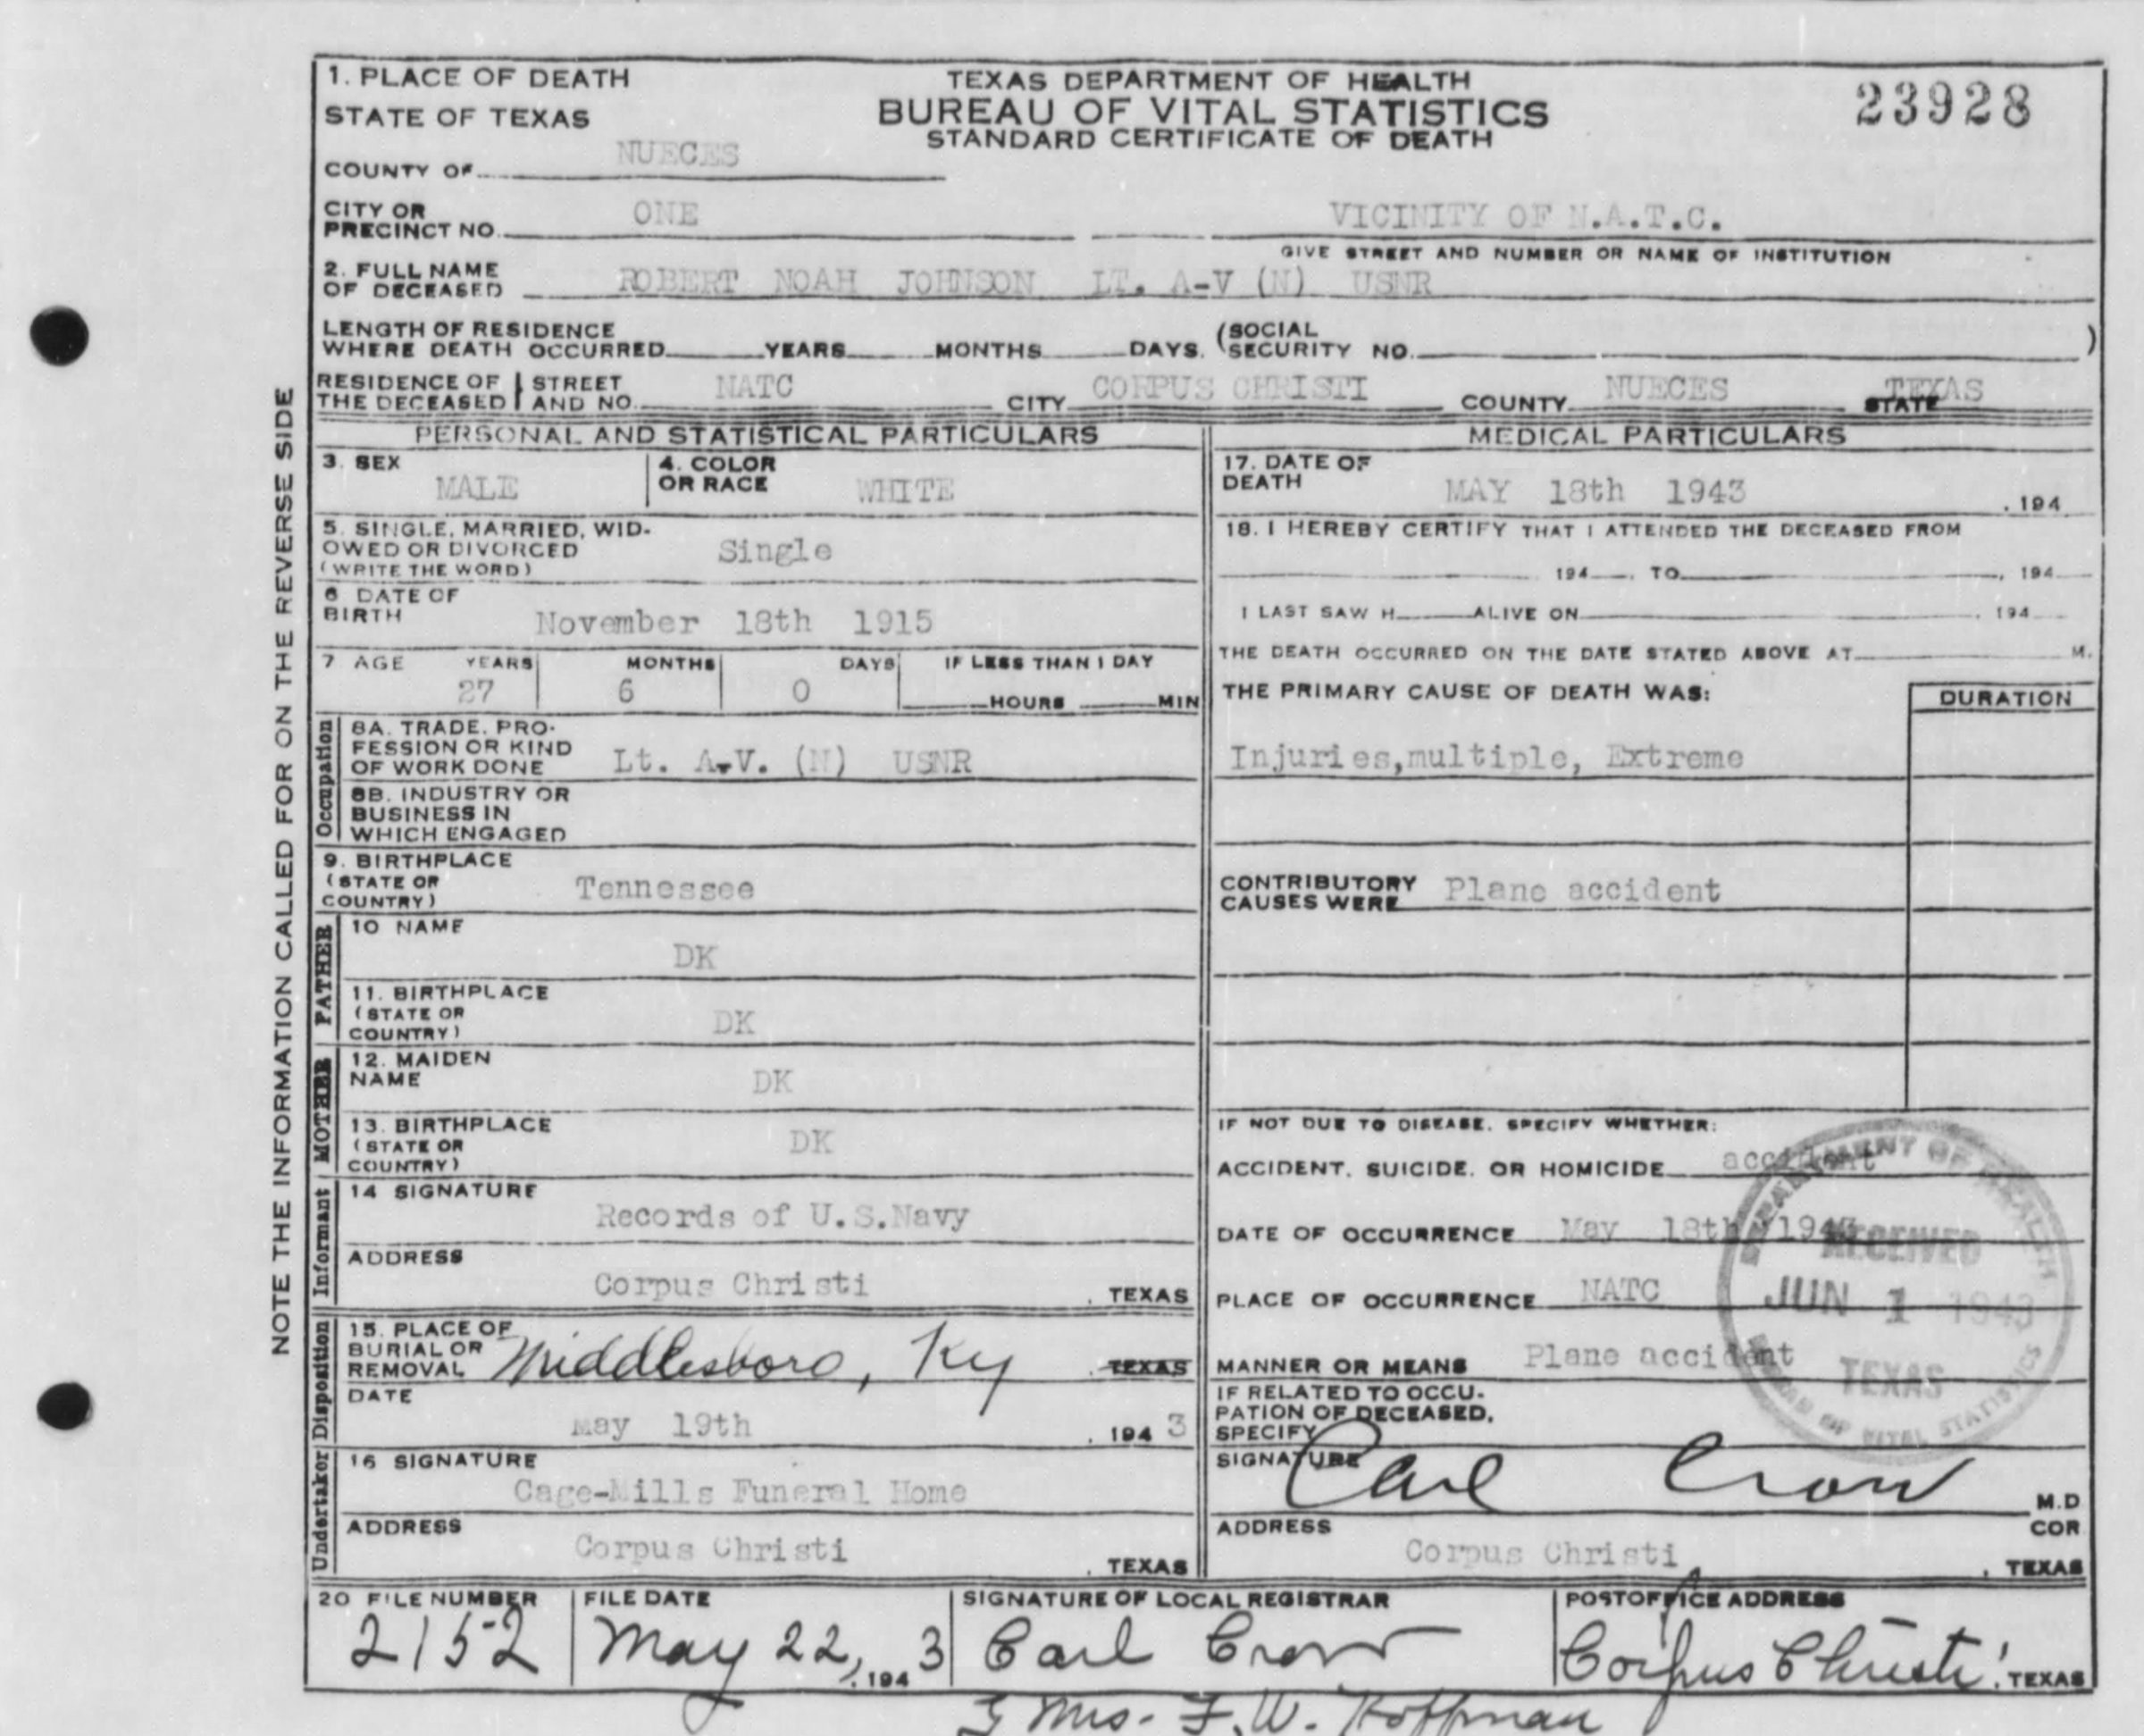 1. PLACE OF DEATH
STATE OF TEXAS
TEXAS DEPARTMENT OF HEALTH
BUREAU OF VITAL STATISTICS
STANDARD CERTIFICATE OF DEATH
23928
COUNTY OF NUECES
CITY OR PRECINCT NO. ONE VICINITY OF N.A.T.C.
GIVE STREET AND NUMBER OR NAME OF INSTITUTION
2. FULL NAME OF DECEASED ROBERT NOAH JOHNSON LT. A-V (N) USNR
LENGTH OF RESIDENCE WHERE DEATH OCCURRED YEARS MONTHS DAYS. (SOCIAL SECURITY NO. )
RESIDENCE OF THE DECEASED STREET AND NO. NATC CITY CORPUS CHRISTI COUNTY NUECES STATE TEXAS
PERSONAL AND STATISTICAL PARTICULARS
3. SEX MALE
4. COLOR OR RACE WHITE
5. SINGLE, MARRIED, WIDOWED OR DIVORCED (WRITE THE WORD) Single
6 DATE OF BIRTH November 18th 1915
7 AGE YEARS 27 MONTHS 6 DAYS 0 IF LESS THAN 1 DAY HOURS MIN
Occupation
8A. TRADE, PROFESSION OR KIND OF WORK DONE Lt. A.V. (N) USNR
8B. INDUSTRY OR BUSINESS IN WHICH ENGAGED
9. BIRTHPLACE (STATE OR COUNTRY) Tennessee
FATHER
10 NAME DK
11. BIRTHPLACE (STATE OR COUNTRY) DK
MOTHER
12. MAIDEN NAME DK
13. BIRTHPLACE (STATE OR COUNTRY) DK
Informant
14 SIGNATURE Records of U.S.Navy
ADDRESS Corpus Christi , TEXAS
Disposition
15. PLACE OF BURIAL OR REMOVAL Middlesboro, Ky , TEXAS
DATE May 19th , 194 3
Undertaker
16 SIGNATURE Cage-Mills Funeral Home
ADDRESS Corpus Christi , TEXAS
MEDICAL PARTICULARS
17. DATE OF DEATH MAY 18th 1943 , 194
18. I HEREBY CERTIFY THAT I ATTENDED THE DECEASED FROM
194 , TO , 194
I LAST SAW H ALIVE ON , 194
THE DEATH OCCURRED ON THE DATE STATED ABOVE AT M.
THE PRIMARY CAUSE OF DEATH WAS: DURATION
Injuries,multiple, Extreme
CONTRIBUTORY CAUSES WERE Plane accident
IF NOT DUE TO DISEASE, SPECIFY WHETHER:
ACCIDENT, SUICIDE, OR HOMICIDE accident
DATE OF OCCURRENCE May 18th 1943
PLACE OF OCCURRENCE NATC
MANNER OR MEANS Plane accident
IF RELATED TO OCCUPATION OF DECEASED, SPECIFY
SIGNATURE Carl Crow M.D
COR
ADDRESS Corpus Christi , TEXAS
DEPARTMENT OF HEALTH
RECEIVED
JUN 1 1943
TEXAS
BUREAU OF VITAL STATISTICS
20 FILE NUMBER 2152
FILE DATE May 22, , 194 3
SIGNATURE OF LOCAL REGISTRAR Carl Crow
POSTOFFICE ADDRESS Corpus Christi , TEXAS
Mrs. F.W. Hoffman
NOTE THE INFORMATION CALLED FOR ON THE REVERSE SIDE